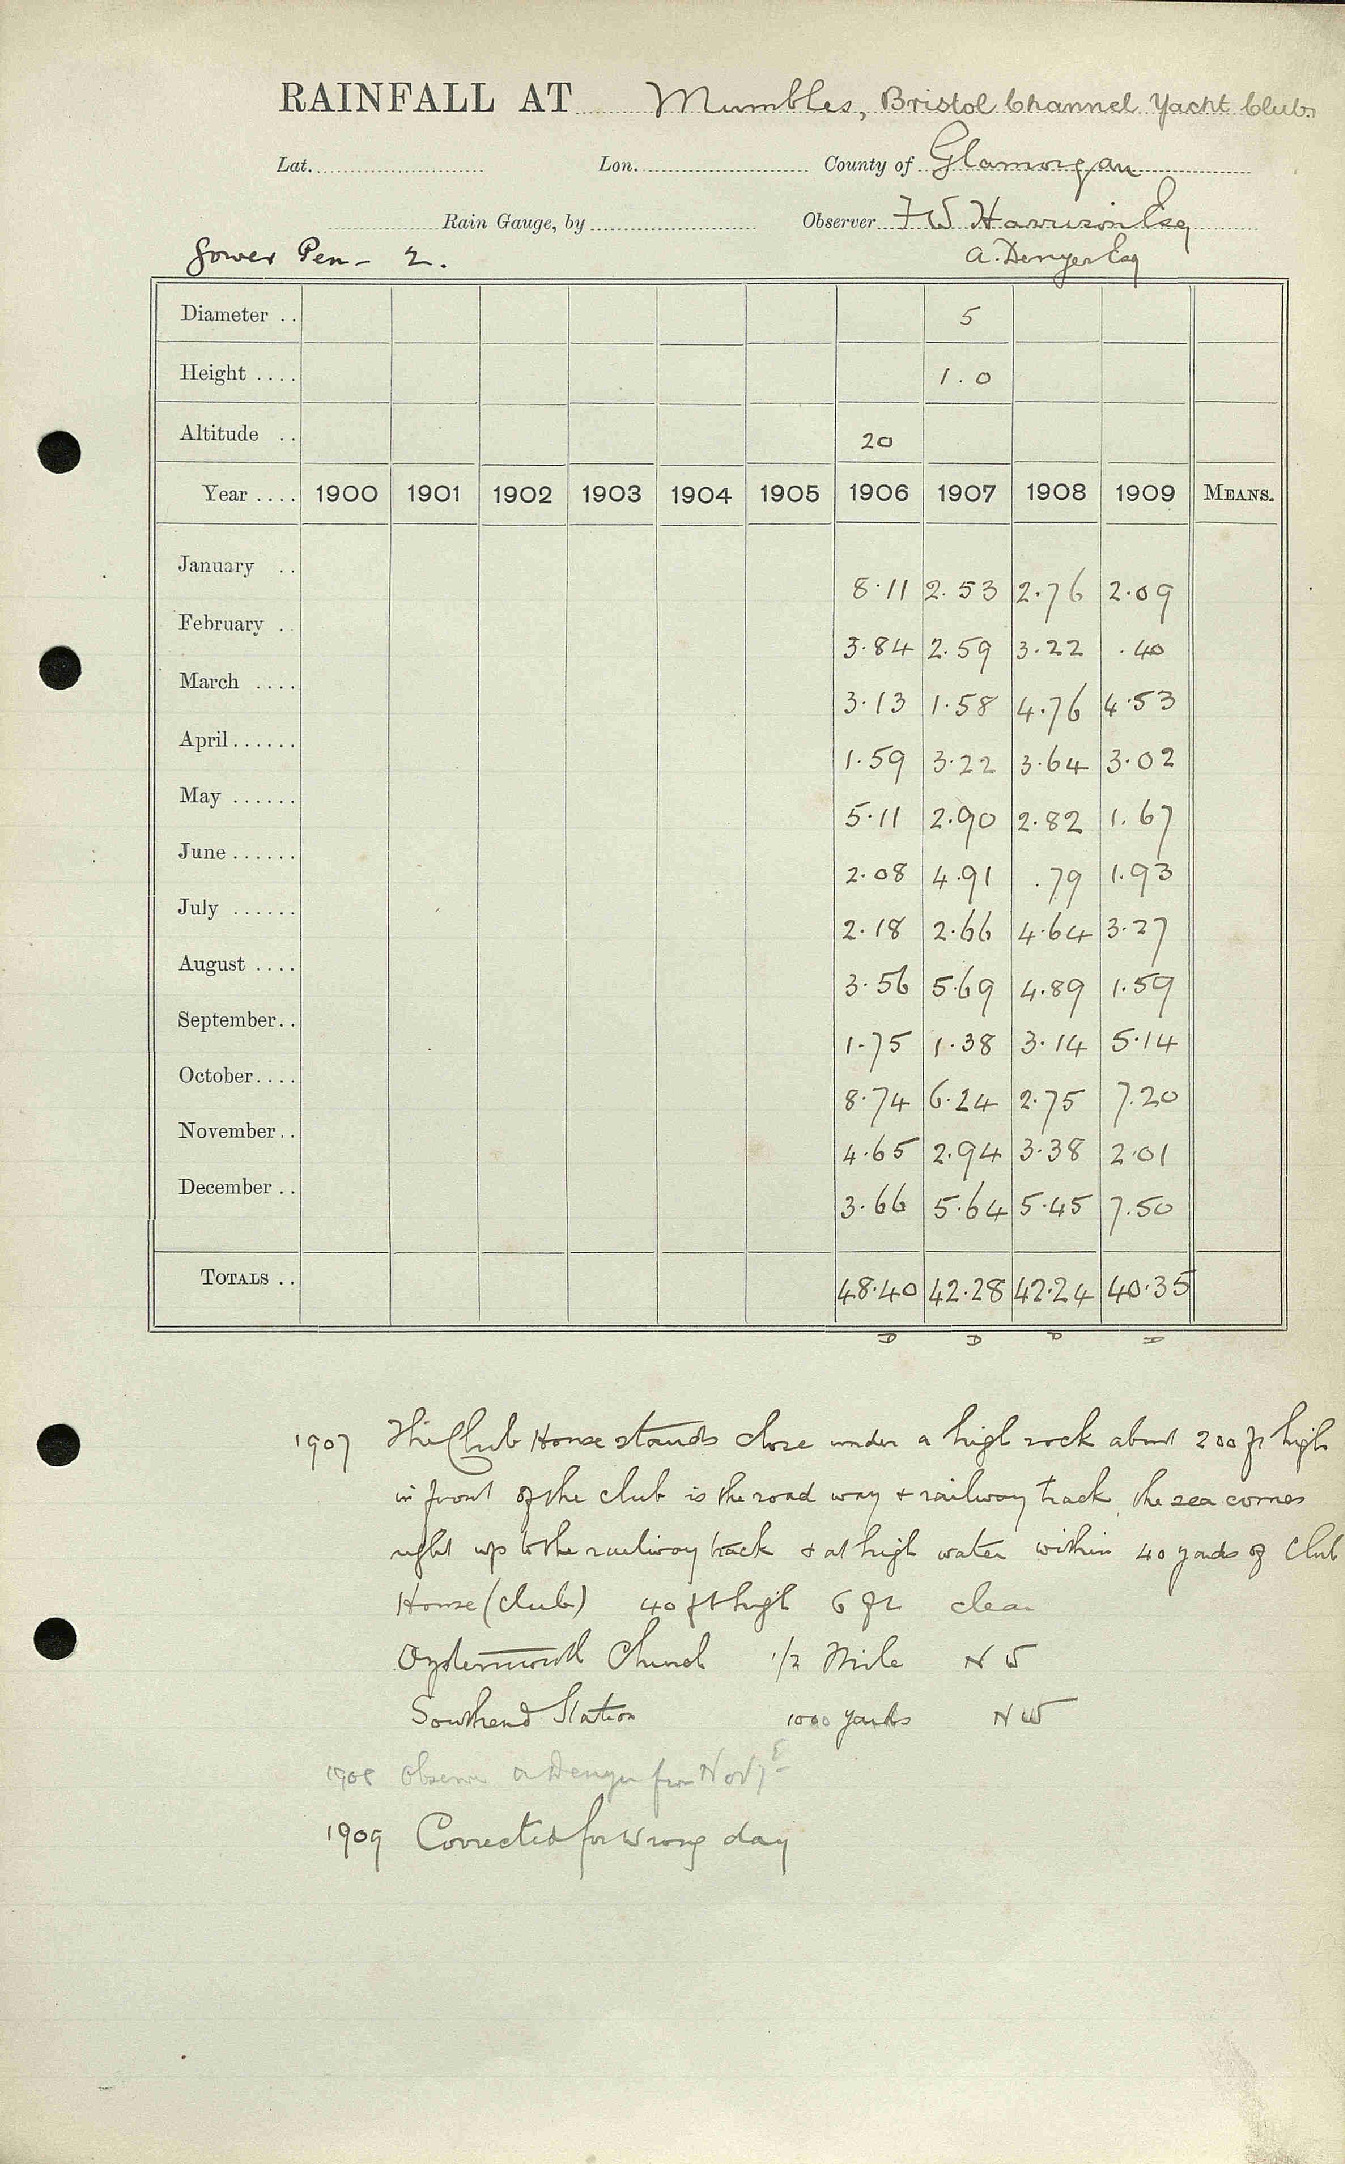 RAINFALL AT Mumbles, Bristol Channel Yacht Club.
Lat. Lon. County of Glamorgan
Rain Gauge, by Observer F W Harrison Esq
Gower Pen - 2. A. Denyer Esq
Diameter .. 5
Height .... 1.0
Altitude .. 20
Year .... 1900 1901 1902 1903 1904 1905 1906 1907 1908 1909 MEANS.
January .. 8.11 2.53 2.76 2.09
February .. 3.84 2.59 3.22 .40
March .... 3.13 1.58 4.76 4.53
April...... 1.59 3.22 3.64 3.02
May ...... 5.11 2.90 2.82 1.67
June...... 2.08 4.91 .79 1.93
July ...... 2.18 2.66 4.64 3.27
August .... 3.56 5.69 4.89 1.59
September.. 1.75 1.38 3.14 5.14
October.... 8.74 6.24 2.75 7.20
November.. 4.65 2.94 3.38 2.01
December .. 3.66 5.64 5.45 7.50
TOTALS .. 48.40 42.28 42.24 40.35
D D D D
1907 The Club House stands close under a high rock about 200 ft high
in front of the club is the road way + railway track the sea comes
right up to the railway track & at high water within 40 yards of Club
House (club) 40 ft high 6 ft clear
Oystermouth Church 1/2 Mile N W
Southend Station 1000 yards N W
1908 Observer A Denyer from Nov 7
1909 Corrected for wrong day